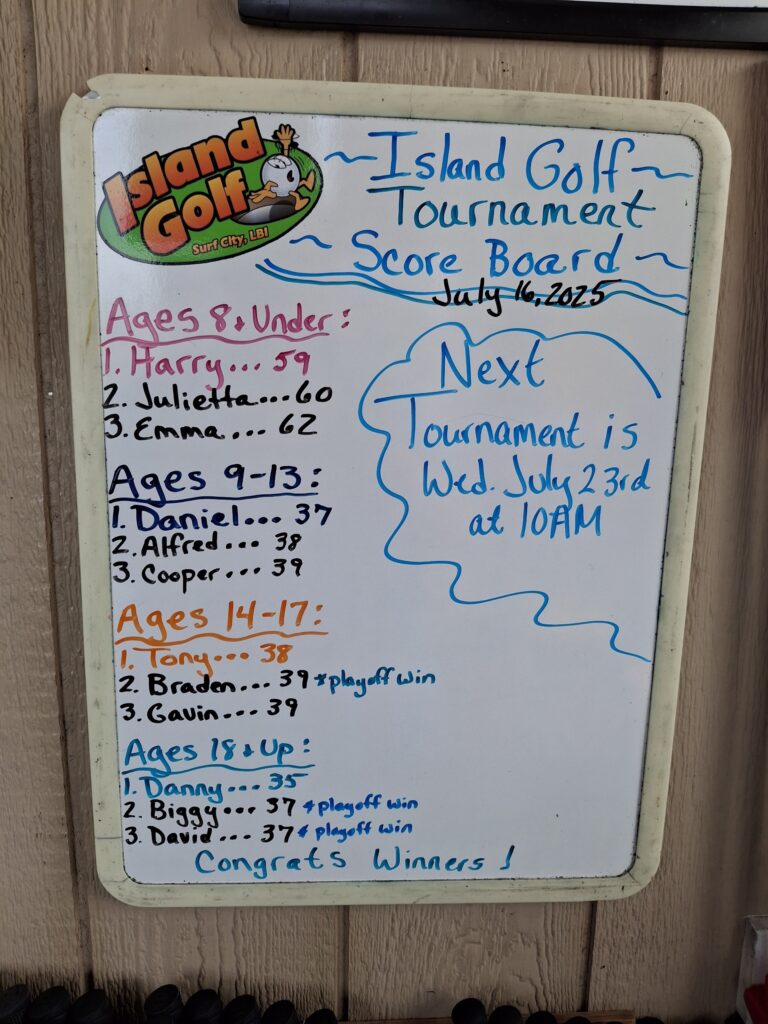 Island
Golf
Surf City, LBI
~Island Golf~
Tournament
~Score Board~
July 16, 2025
Ages 8 & Under:
1. Harry... 59
2. Julietta... 60
3. Emma... 62
Ages 9-13:
1. Daniel... 37
2. Alfred... 38
3. Cooper... 39
Ages 14-17:
1. Tony... 38
2. Braden... 39 *playoff win
3. Gavin... 39
Ages 18 & Up:
1. Danny... 35
2. Biggy... 37 *playoff win
3. David... 37 * playoff win
Congrats Winners!
Next
Tournament is
Wed. July 23rd
at 10AM